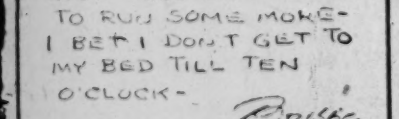 TO RUN SOME MORE-
I BET I DON'T GET TO
MY BED TILL TEN
O'CLOCK-